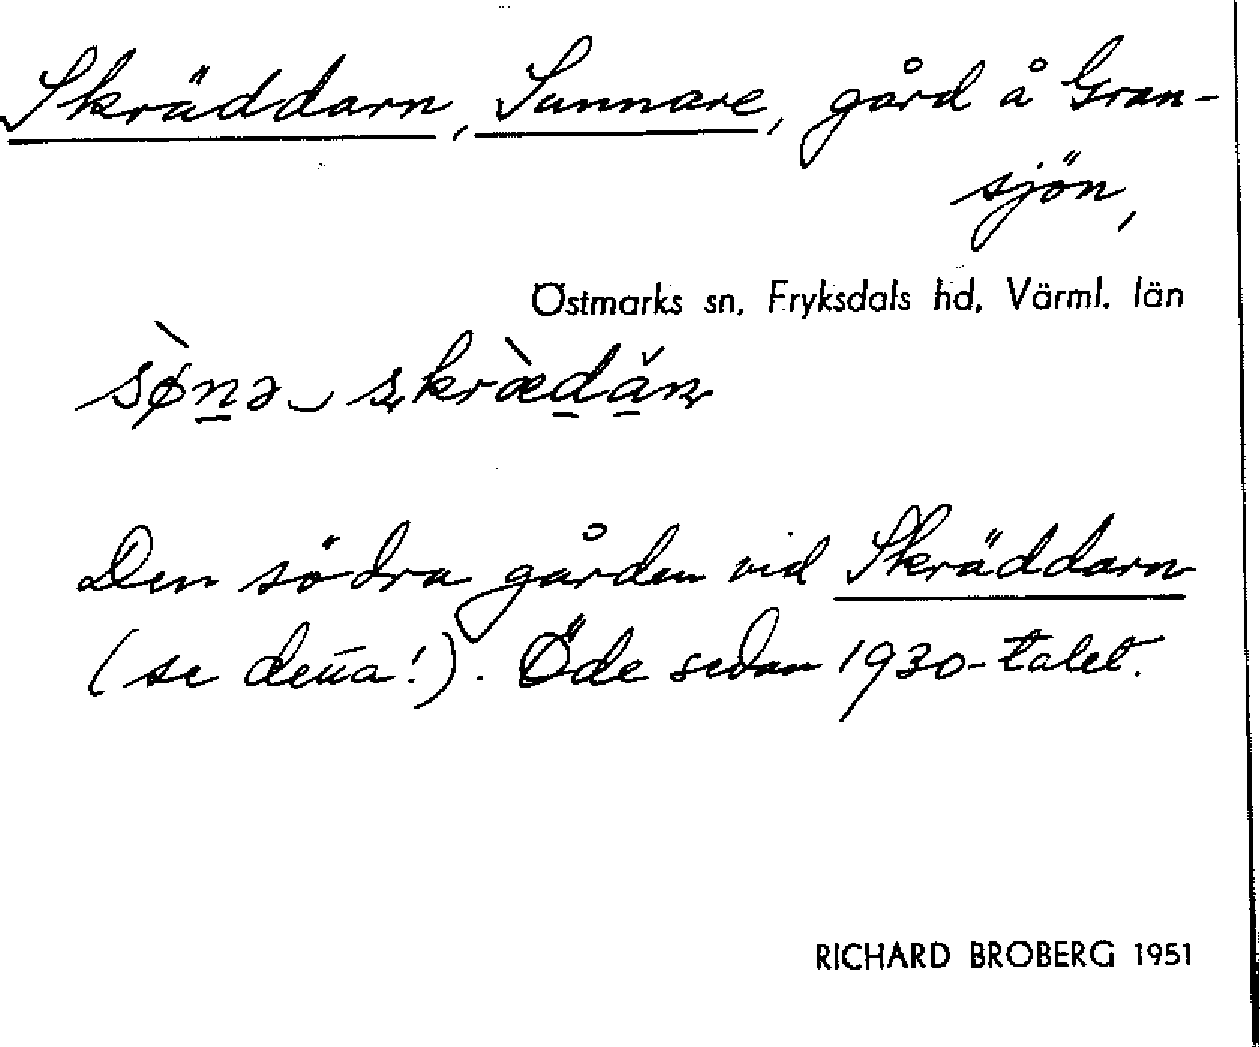 Skräddarn, Sunnare, gård å Gran-
sjön,
Östmarks sn, Fryksdals hd, Värml. län
sø̀nə‿skræ̀dǎn
Den södra gården vid Skräddarn
(se deña!). Öde sedan 1930-talet.
RICHARD BROBERG 1951